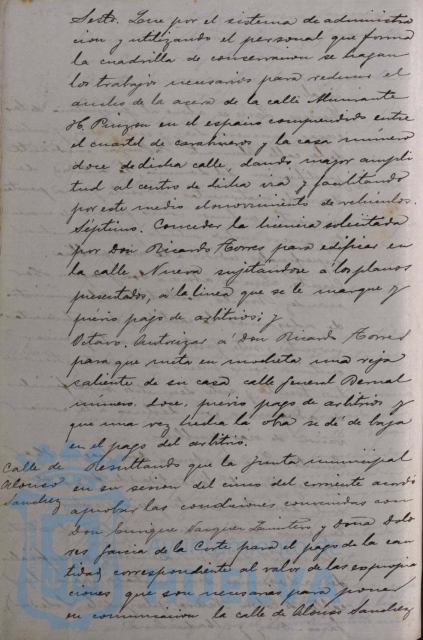 Sexto. Que por el sistema de administra
cion y utilizando el personal que forma
la cuadrilla de conservacion se hagan
los trabajos necesarios para reducir el
ancho de la acera de la calle Almirante
H. Pinzon en el espacio comprendido entre
el cuartel de carabineros y la casa número
doce de dicha calle, dando mayor ampli
tud al centro de dicha via y facilitando
por este medio el movimiento de vehiculos.
Séptimo. Conceder la licencia solicitada
por Don Ricardo Torres para edificar en
la calle Nueva sujetándose á los planos
presentados, á la linea que se le marque y
prévio pago de arbitrios; y
Octavo. Autorizar á Don Ricardo Torres
para que meta en mocheta una reja
saliente de su casa calle General Bernal
número doce, prévio pago de arbitrios y
que una vez hecha la obra se dé de baja
en el pago del arbitrio.
Calle de
Alonso
Sanchez
Resultando que la Junta municipal
en su sesion del cinco del corriente acordó
aprobar las condiciones convenidas con
Don Enrique Vazquez y doña Dolo
res Garcia de la Corte para el pago de la can
tidad correspondiente al valor de las expropia
ciones que son necesarias para poner
en comunicacion la calle de Alonso Sanchez
HUELVA